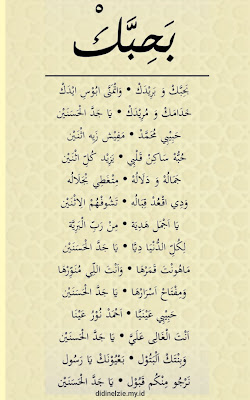 بَحِبَّكْ
بَحِبَّكْ وَ بَرِيْدَكْ • وَاتْمَنَّى ابُوْسِ ايْدَكْ
خَدَامَكْ وَ مُرِيْدَكْ • يَا جَدَّ الْحَسَنَيْنْ
حَبِيْبِي مُحَمَّدْ • مَفِيْشْ زَيِه اثْنَيْنْ
حُبُّهْ سَاكِنْ قَلْبِي • يَزِيْد كُلِّ اثْنَيْنْ
جَمَالُهْ وَ دَلَالُهْ • مِتْغَطِّي بْجَلَالُه
وَدِي اقْعُدْ قِبَالُه • تَشُوْفْهُمْ الِاثْنَيْنْ
يَا اَجْمَل هَدِيَّة • مِنْ رَبِّ الْبَرِيَّة
لِكُلِّ الدُّنْيَا دِيَّا • يَا جَدَّ الْحَسَنَيْنْ
مَاهُوْنْتَ قَمَرْهَا • وَاَنْتَ اللِّي مْنَوِّرْهَا
وَمِفْتَاحُ اَسْرَارْهَا • يَا جَدَّ الْحَسَنَيْنْ
حَبِيْبِي عَيْنَيَّا • اَحْمَدْ نُوْرُ عَيْنَا
اَنْتَ الْغَالِي عَلَيَّ • يَا جَدَّ الْحَسَنَيْنْ
وَبِنْتَكَ الْبَتُوْل • بَعْيُوْنَكْ يَا رَسُول
نَرْجُو مِنْكُم قَبُوْل • يَا جَدَّ الْحَسَنَيْنْ
didinelzie.my.id